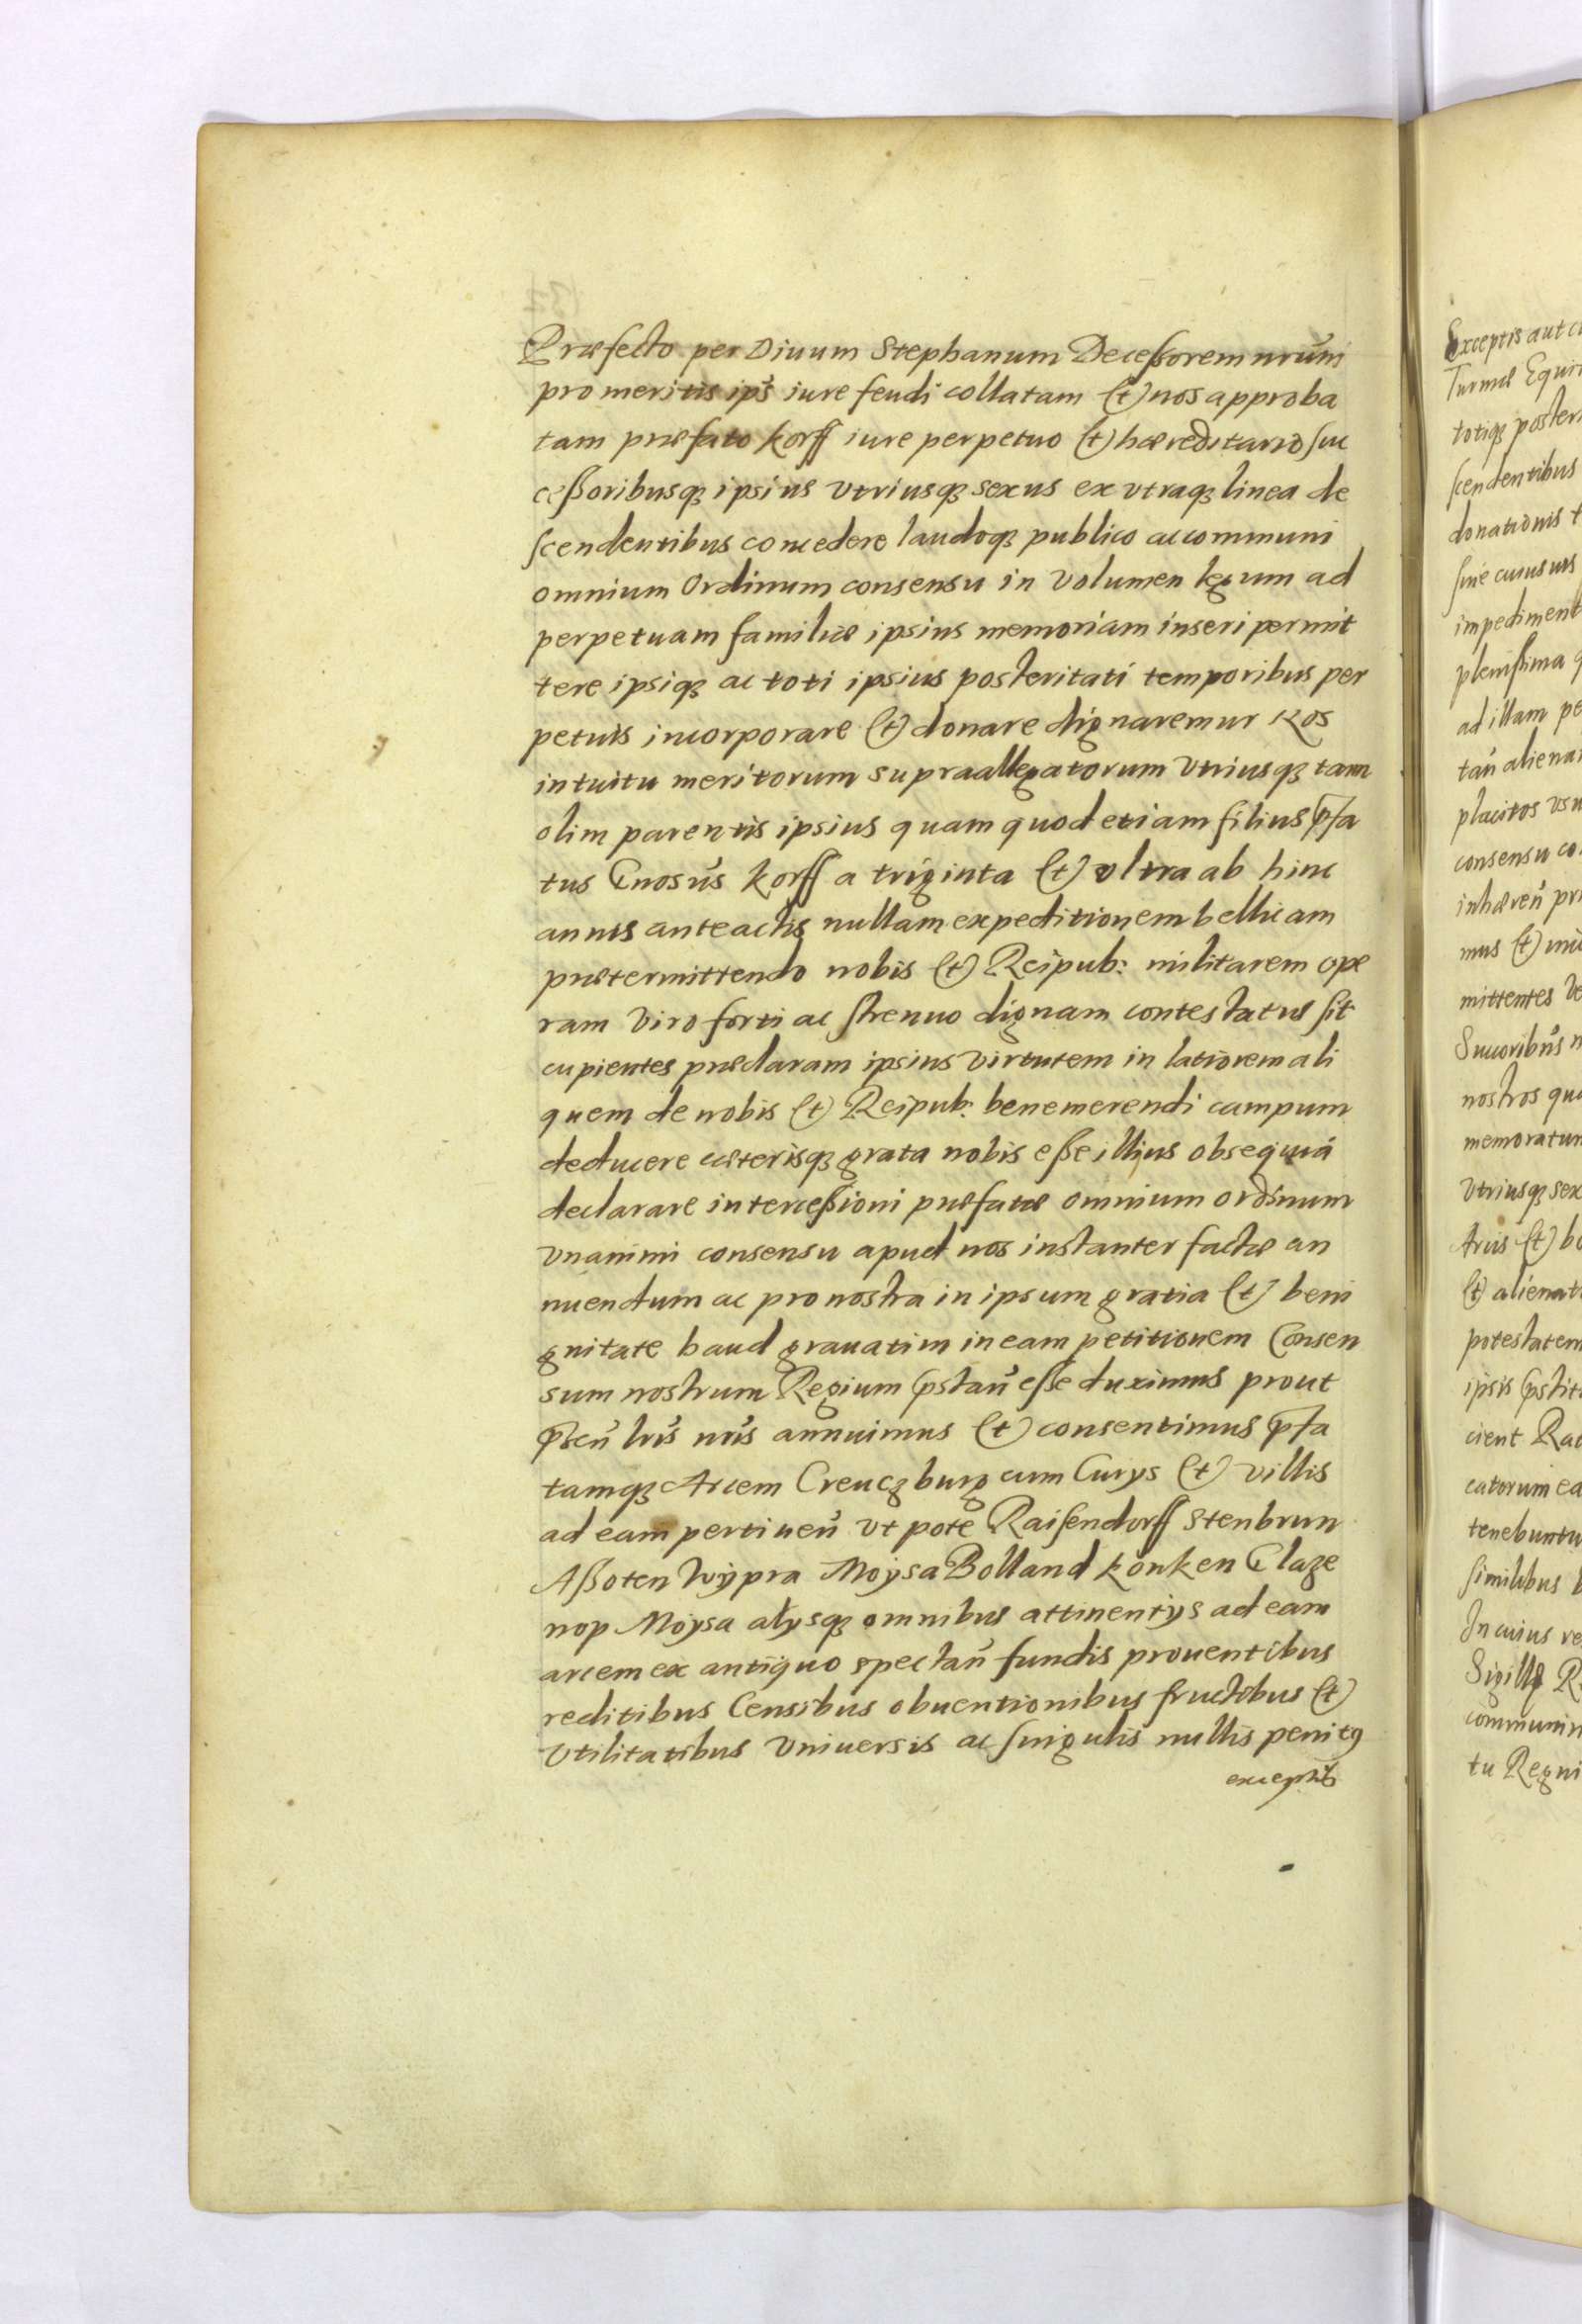 Præfecto per Diuum Stephanum Deceßorem nrūm
pro meritis ips̄ iure feudi collatam (et) nos approba
tam præfato Korff iure perpetuo (et) hæreditario suc
ceßoribusq3 ipsius vtriusq3 sexus ex vtraq3 linea de
scendentibus concedere laudoq3 publico ac communi
omnium Ordinum consensu in volumen legum ad
perpetuam familiæ ipsius memoriam inseri permit
tere ipsiq3 ac toti ipsius posteritati temporibus per
petuis incorporare (et) donare dignaremur Nos
intuitu meritorum supraallegatorum vtriusq3 tam
olim parentis ipsius quam quod etiam filius p̄fa
tus Gnosūs Korff a triginta (et) vltra ab hinc
annis anteactis nullam expeditionem bellicam
prætermittendo nobis (et) Reipub: militarem ope
ram viro forti ac strenuo dignam contestatus sit
cupientes præclaram ipsius virtutem in latiorem ali
quem de nobis (et) Reipub: benemerendi campum
deducere cæterisq3 grata nobis eße illius obsequia
declarare interceßioni præfatæ omnium ordinum
vnanimi consensu apud nos instanter factæ an
nuendum ac pro nostra in ipsum gratia (et) beni
gnitate haud grauatim in eam petitionem Consen
sum nostrum Regium p̄stan̄ eße duximus prout
p̄sen̄ lrīs nrīs annuimus (et) consentimus p̄fa
tamq3 Arcem Creuczburg cum Curys (et) villis
ad eam pertinen̄ vt pote Raisendorff Stenbrun
Aßoten Wypra Moysa Bolland Konken Glaze
nop Moysa alysq3 omnibus attinentys ad eam
arcem ex antiquo spectan̄ fundis prouentibus
reditibus Censibus obuentionibus fructibus (et)
vtilitatibus vniuersis ac singulis nullis penitq
exceptis
Exceptis aut
Turmæ
totiq3
scendentibus
donationis
sine cuiusuis
impediment
plenißima
ad illam
tan̄
placitos
consensu
inhæren̄
mus (et)
mittentes
nostros
memoratum
vtriusq3
(et)
potestatem
ipsis
cient
catorum
tenebuntur
similibus
In cuius
tu Regni